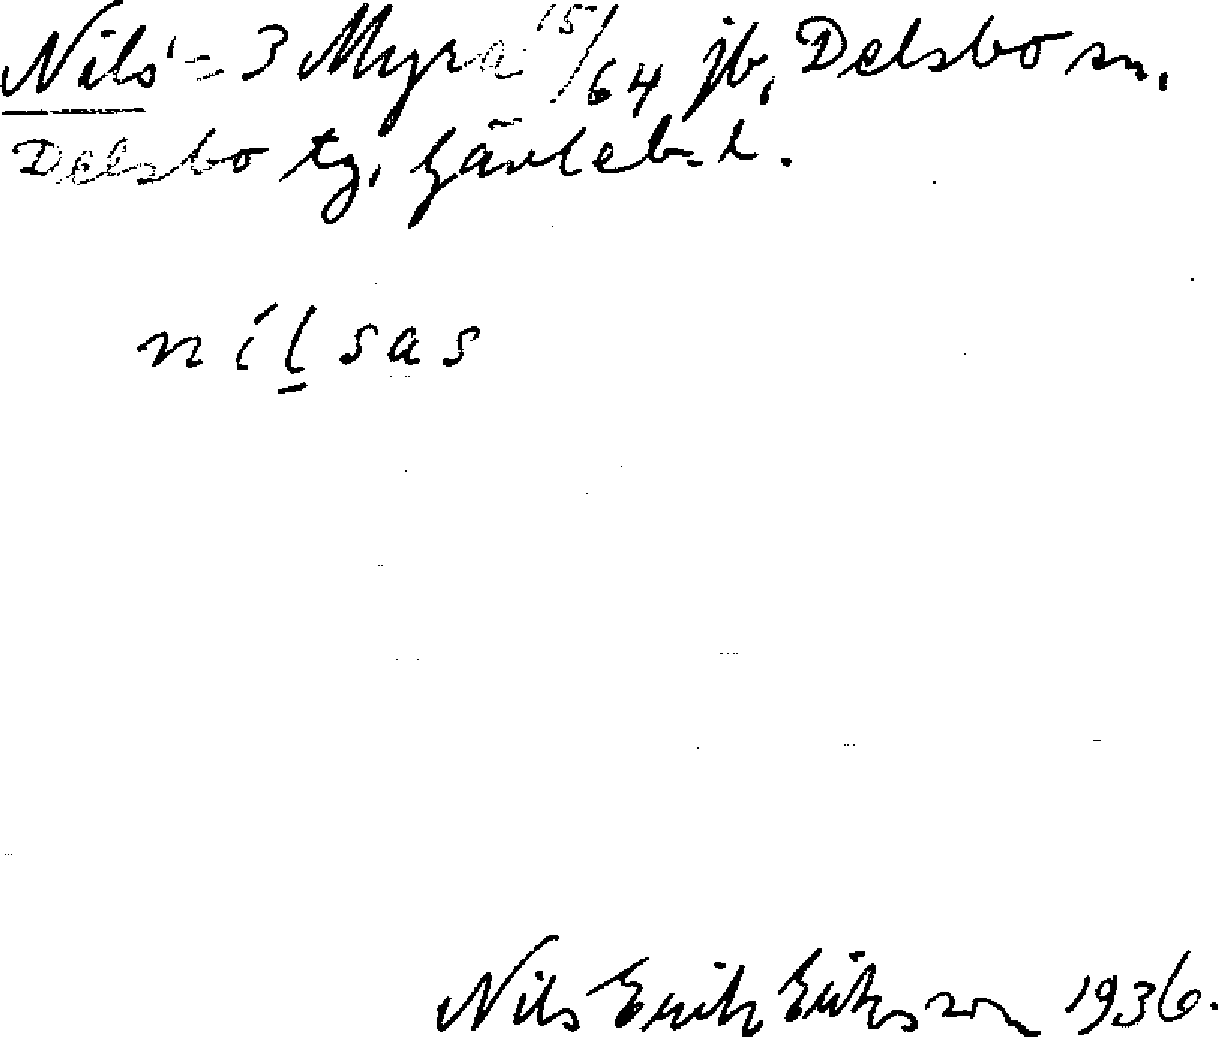 Nils' = 3 Myra 15/64 jb, Delsbo sn,
Delsbo tg, Gävleb. l.
nílsas
Nils Erik Eriksson 1936.